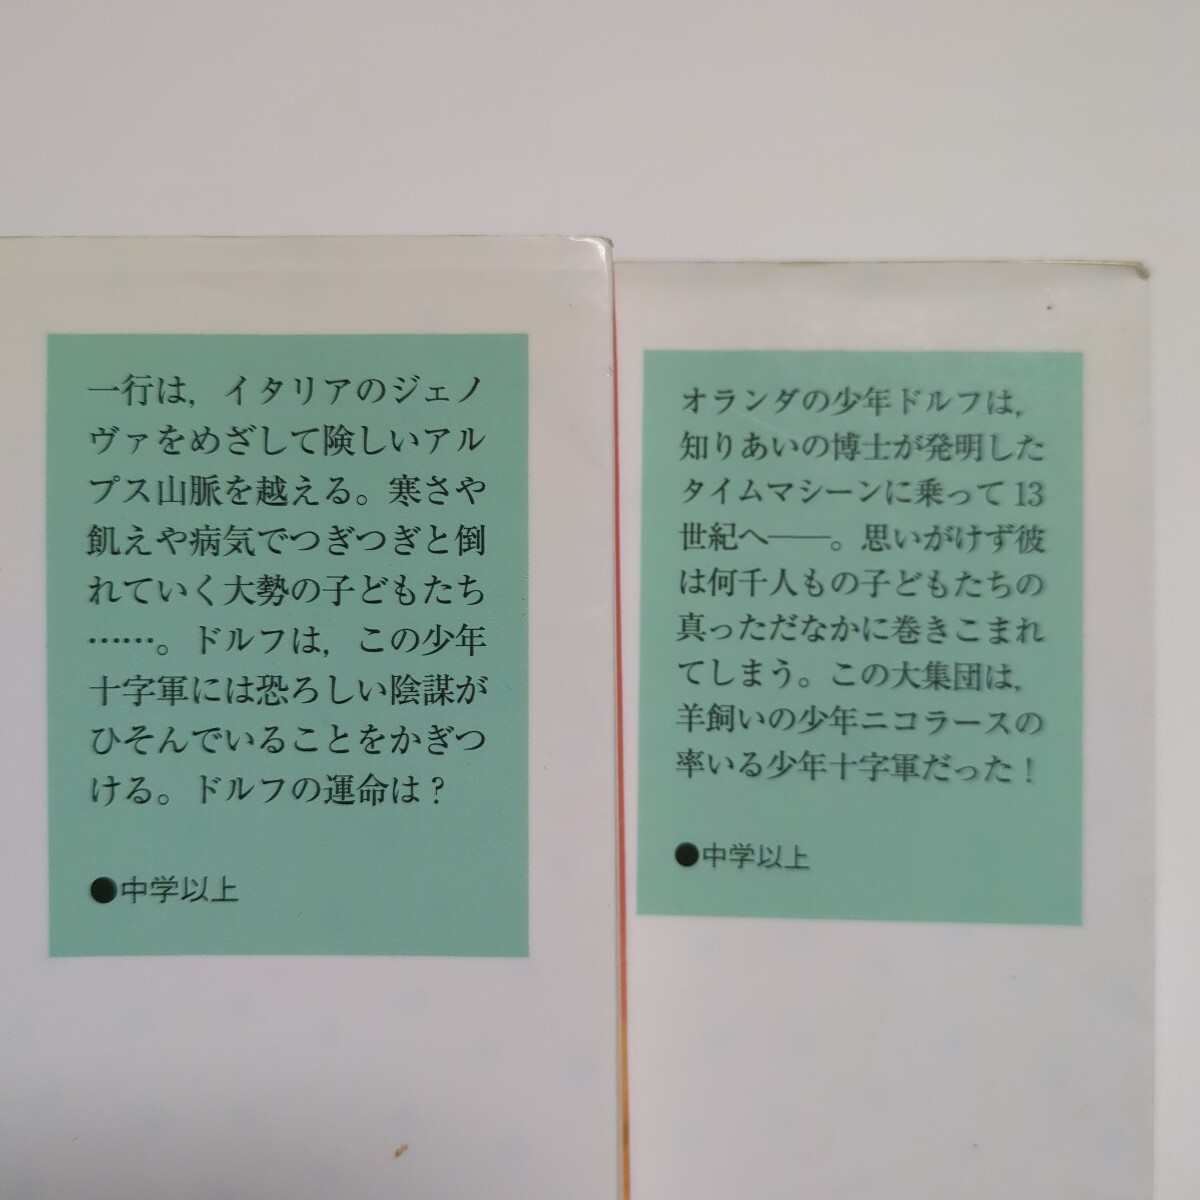 一行は，イタリアのジェノ
ヴァをめざして険しいアル
プス山脈を越える。寒さや
飢えや病気でつぎつぎと倒
れていく大勢の子どもたち
……。ドルフは，この少年
十字軍には恐ろしい陰謀が
ひそんでいることをかぎつ
ける。ドルフの運命は？
●中学以上
オランダの少年ドルフは，
知りあいの博士が発明した
タイムマシーンに乗って13
世紀へ――。思いがけず彼
は何千人もの子どもたちの
真っただなかに巻きこまれ
てしまう。この大集団は，
羊飼いの少年ニコラースの
率いる少年十字軍だった！
●中学以上